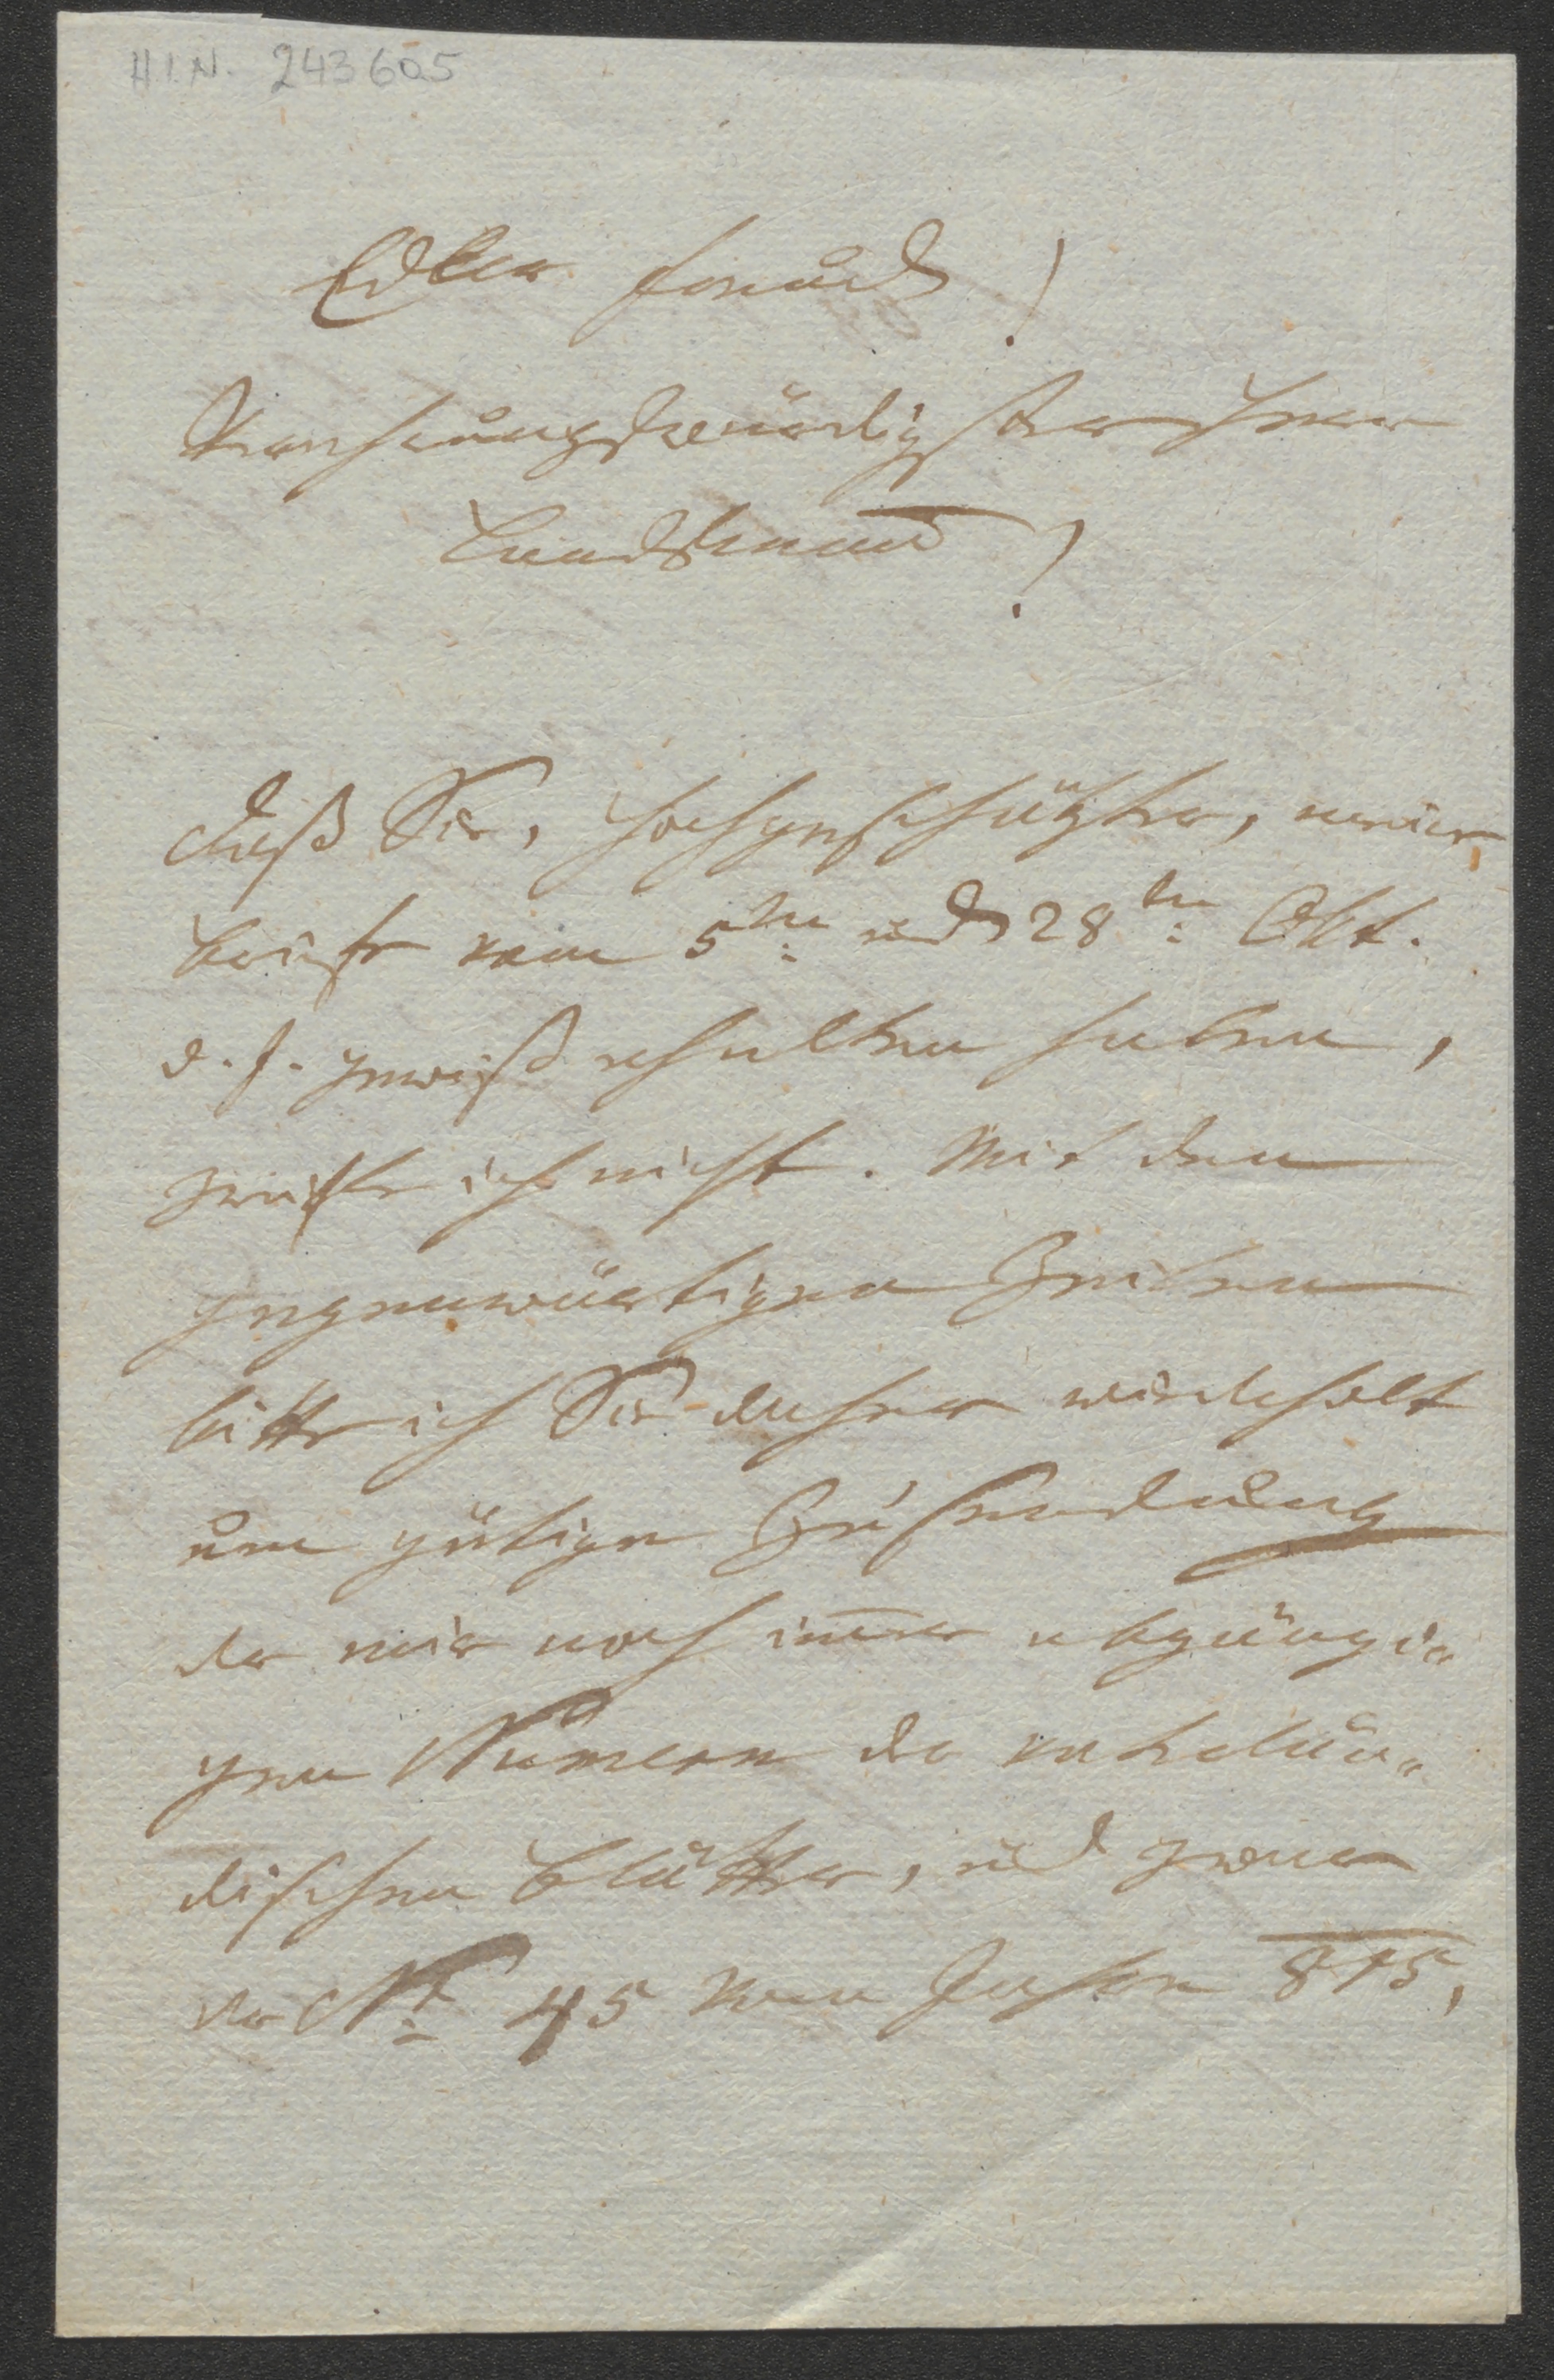 H.I.N. 243605
Edler Freund!
Verehrungswürdigster Herr
Landsmann!
Daß Sie, Hochgeschätzter, meine
Briefe vom 5ten und 28ten Okt.
d. J. gewiß erhalten haben,
zweifle ich nicht. Mit den
gegenwärtigen Zeilen
bitte ich Sie daher wiederholt
um gütige Zusendung
der mir noch immer abgängi„
gen Numern der vaterlän„
dischen Blätter, und zwar
der Nr. 45 vom Jahre 815,